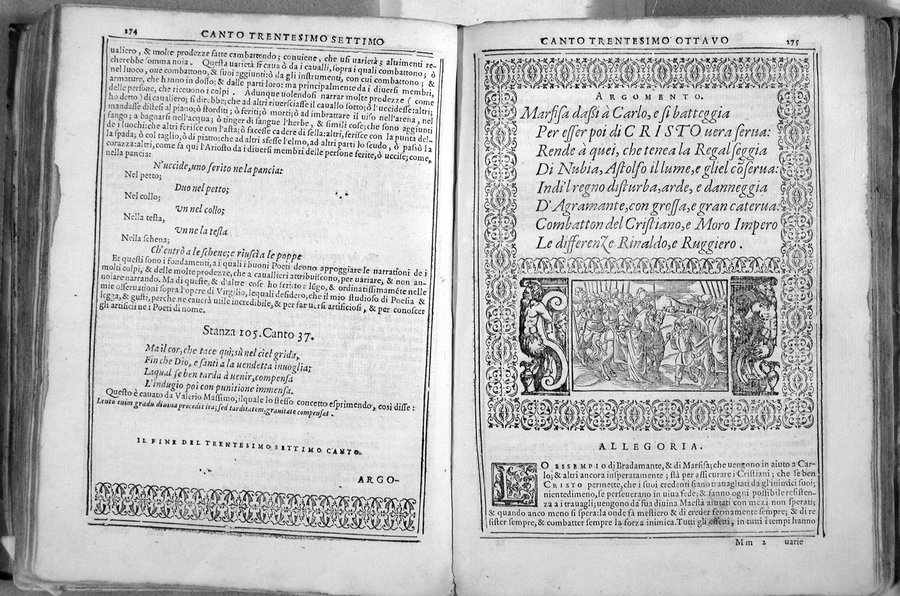 274
CANTO TRENTESIMO SETTIMO
ualiero, & molte prodezze fatte cambattendo; conuiene, che usi uarietà; altrimenti re-
cherebbe somma noia. Questa uarietà si caua ò da i caualli, sopra i quali combattono; ò
nel luoco, oue combattono, & suoi aggiunti: ò da gli instrumenti, con cui combattono; &
armature, che hanno in dosso: & dalle parti loro: ma principalmente da i diuersi membri,
delle persone, che riceuono i colpi. Adunque uolendosi narrar molte prodezze (come
ho detto) di caualiero; si direbbe; che ad altri riuersciasse il cauallo sotto; ò l'uccidesse: altri;
mandasse disteso al piano; ò stordisse; ò ferisse; ò morisse; ò ad imbrattare il uiso nell'arena, nel
fango; a bagnarsi nell'acqua; ò tinger di sangue l'herbe, & simili cose; che sono aggiunti
de i luochi: che altri ferisse con l'asta; ò facesse cadere di sella: altri, ferisse con la punta del-
la spada; ò col taglio, ò di piatone: ad altri sfesse l'elmo, ad altri parti lo scudo, ò passò la
corazza: altri, come fa qui l'Ariosto da i diuersi membri delle persone ferite, ò uccise; come,
nella pancia:
N'uccide, uno ferito ne la pancia:
Nel petto;
Duo nel petto;
Nel collo;
Vn nel collo;
Nella testa,
Vn ne la testa
Nella schena;
Ch'entrò a le schene; e riuscì a le poppe
Et questi sono i fondamenti, a i quali i buoni Poeti deono appoggiare le narrationi de i
molti colpi, & delle molte prodezze, che a cauallieri attribuiscono, per uariare, & non an-
noiare narrando. Ma di queste, & d'altre cose ho scritto a lungo, & ordinatissimamēte nelle
mie osseruationi sopra l'opere di Virgilio, lequali desidero, che il mio studioso di Poesia &
legga, & gusti, perche ne cauerà utile incredibile, & per far uersi artificiosi, & per conoscer
gli artifici ne i Poeti di nome.
Stanza 105. Canto 37.
Ma il cor, che tace quì; sù nel ciel grida,
Fin che Dio, e santi a la uendetta inuoglia;
Laqual se ben tarda à uenir, compensa
L'indugio poi con punitione immensa.
Questo è cauato da Valerio Massimo, ilquale lo stesso concetto esprimendo, così disse:
Lento enim gradu diuina procedit ira; sed tarditatem, grauitate compensat.
IL FINE DEL TRENTESIMO SETTIMO CANTO.
ARGO-
CANTO TRENTESIMO OTTAVO
275
ARGOMENTO.
Marfisa dassi à Carlo, e si batteggia
Per esser poi di CRISTO uera serua:
Rende à quei, che tenea la Regal seggia
Di Nubia, Astolfo il lume, e gliel cōserua:
Indi'l regno disturba, arde, e danneggia
D'Agramante, con grossa, e gran caterua:
Combatton del Cristiano, e Moro Impero
Le differenze Rinaldo, e Ruggiero.
ALLEGORIA.
LO ESSEMPIO di Bradamante, & di Marfisa; che uengono in aiuto a Car-
lo; & altri ancora insperatamente; stà per assicurare i Cristiani; che se ben
CRISTO permette, che i suoi credenti siano trauagliati da gl'inimici suoi;
nientedimeno, se perseuerano in uiua fede, & fanno ogni possibil resisten-
za a i trauagli; uengono da sua diuina Maestà aiutati con mezi non sperati;
& quando anco meno si spera: la onde fà mestiero & di creder fermamente sempre; & di re
sister sempre, & combatter sempre la forza inimica. Tutti gli effetti, in tutti i tempi hanno
Mm 2 uarie